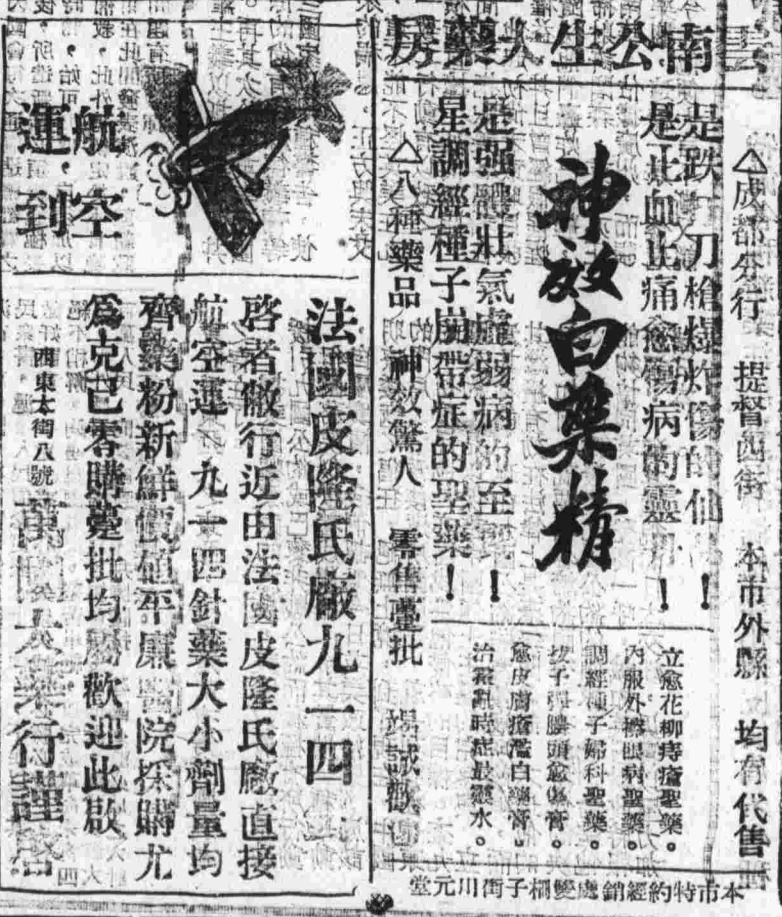 雲南公生大藥房
△成都分行 提督西街 本市外縣 均有代售
是跌打刀槍爆炸傷的仙
是止血止痛愈傷病的靈
神效白藥精
是强體壯氣虛弱病的至
星調經種子崩帶症的聖藥!
△八種藥品 神效驚人 零售躉批 竭誠歡迎
立愈花柳痔瘡聖藥。
內服外擦眼病聖藥。
調經種子婦科聖藥。
拔子彈膿頭愈傷膏。
愈皮膚瘡濫白藥膏。
治霍亂時症最靈水。
本市特約經銷處雙柵子街川元堂
航空
運到
法國皮隆氏廠九一四
啓者敝行近由法國皮隆氏廠直接
航空運 九一四針藥大小劑量均
齊藥粉新鮮價值平廉醫院採購尤
爲克己零購躉批均屬歡迎此啟
西東大街八號 萬國大藥行謹啓